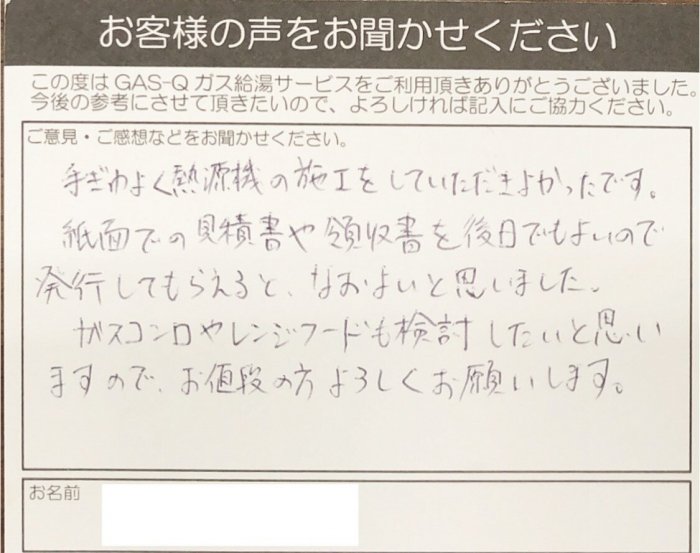 お客様の声をお聞かせください
この度は GAS-Q ガス給湯サービスをご利用頂きありがとうございました。
今後の参考にさせて頂きたいので、よろしければ記入にご協力ください。
ご意見・ご感想などをお聞かせください。
手ぎわよく熱源機の施工をしていただきよかったです。
紙面での見積書や領収書を後日でもよいので
発行してもらえると、なおよいと思いました。
ガスコンロやレンジフードも検討したいと思い
ますので、お値段の方よろしくお願いします。
お名前